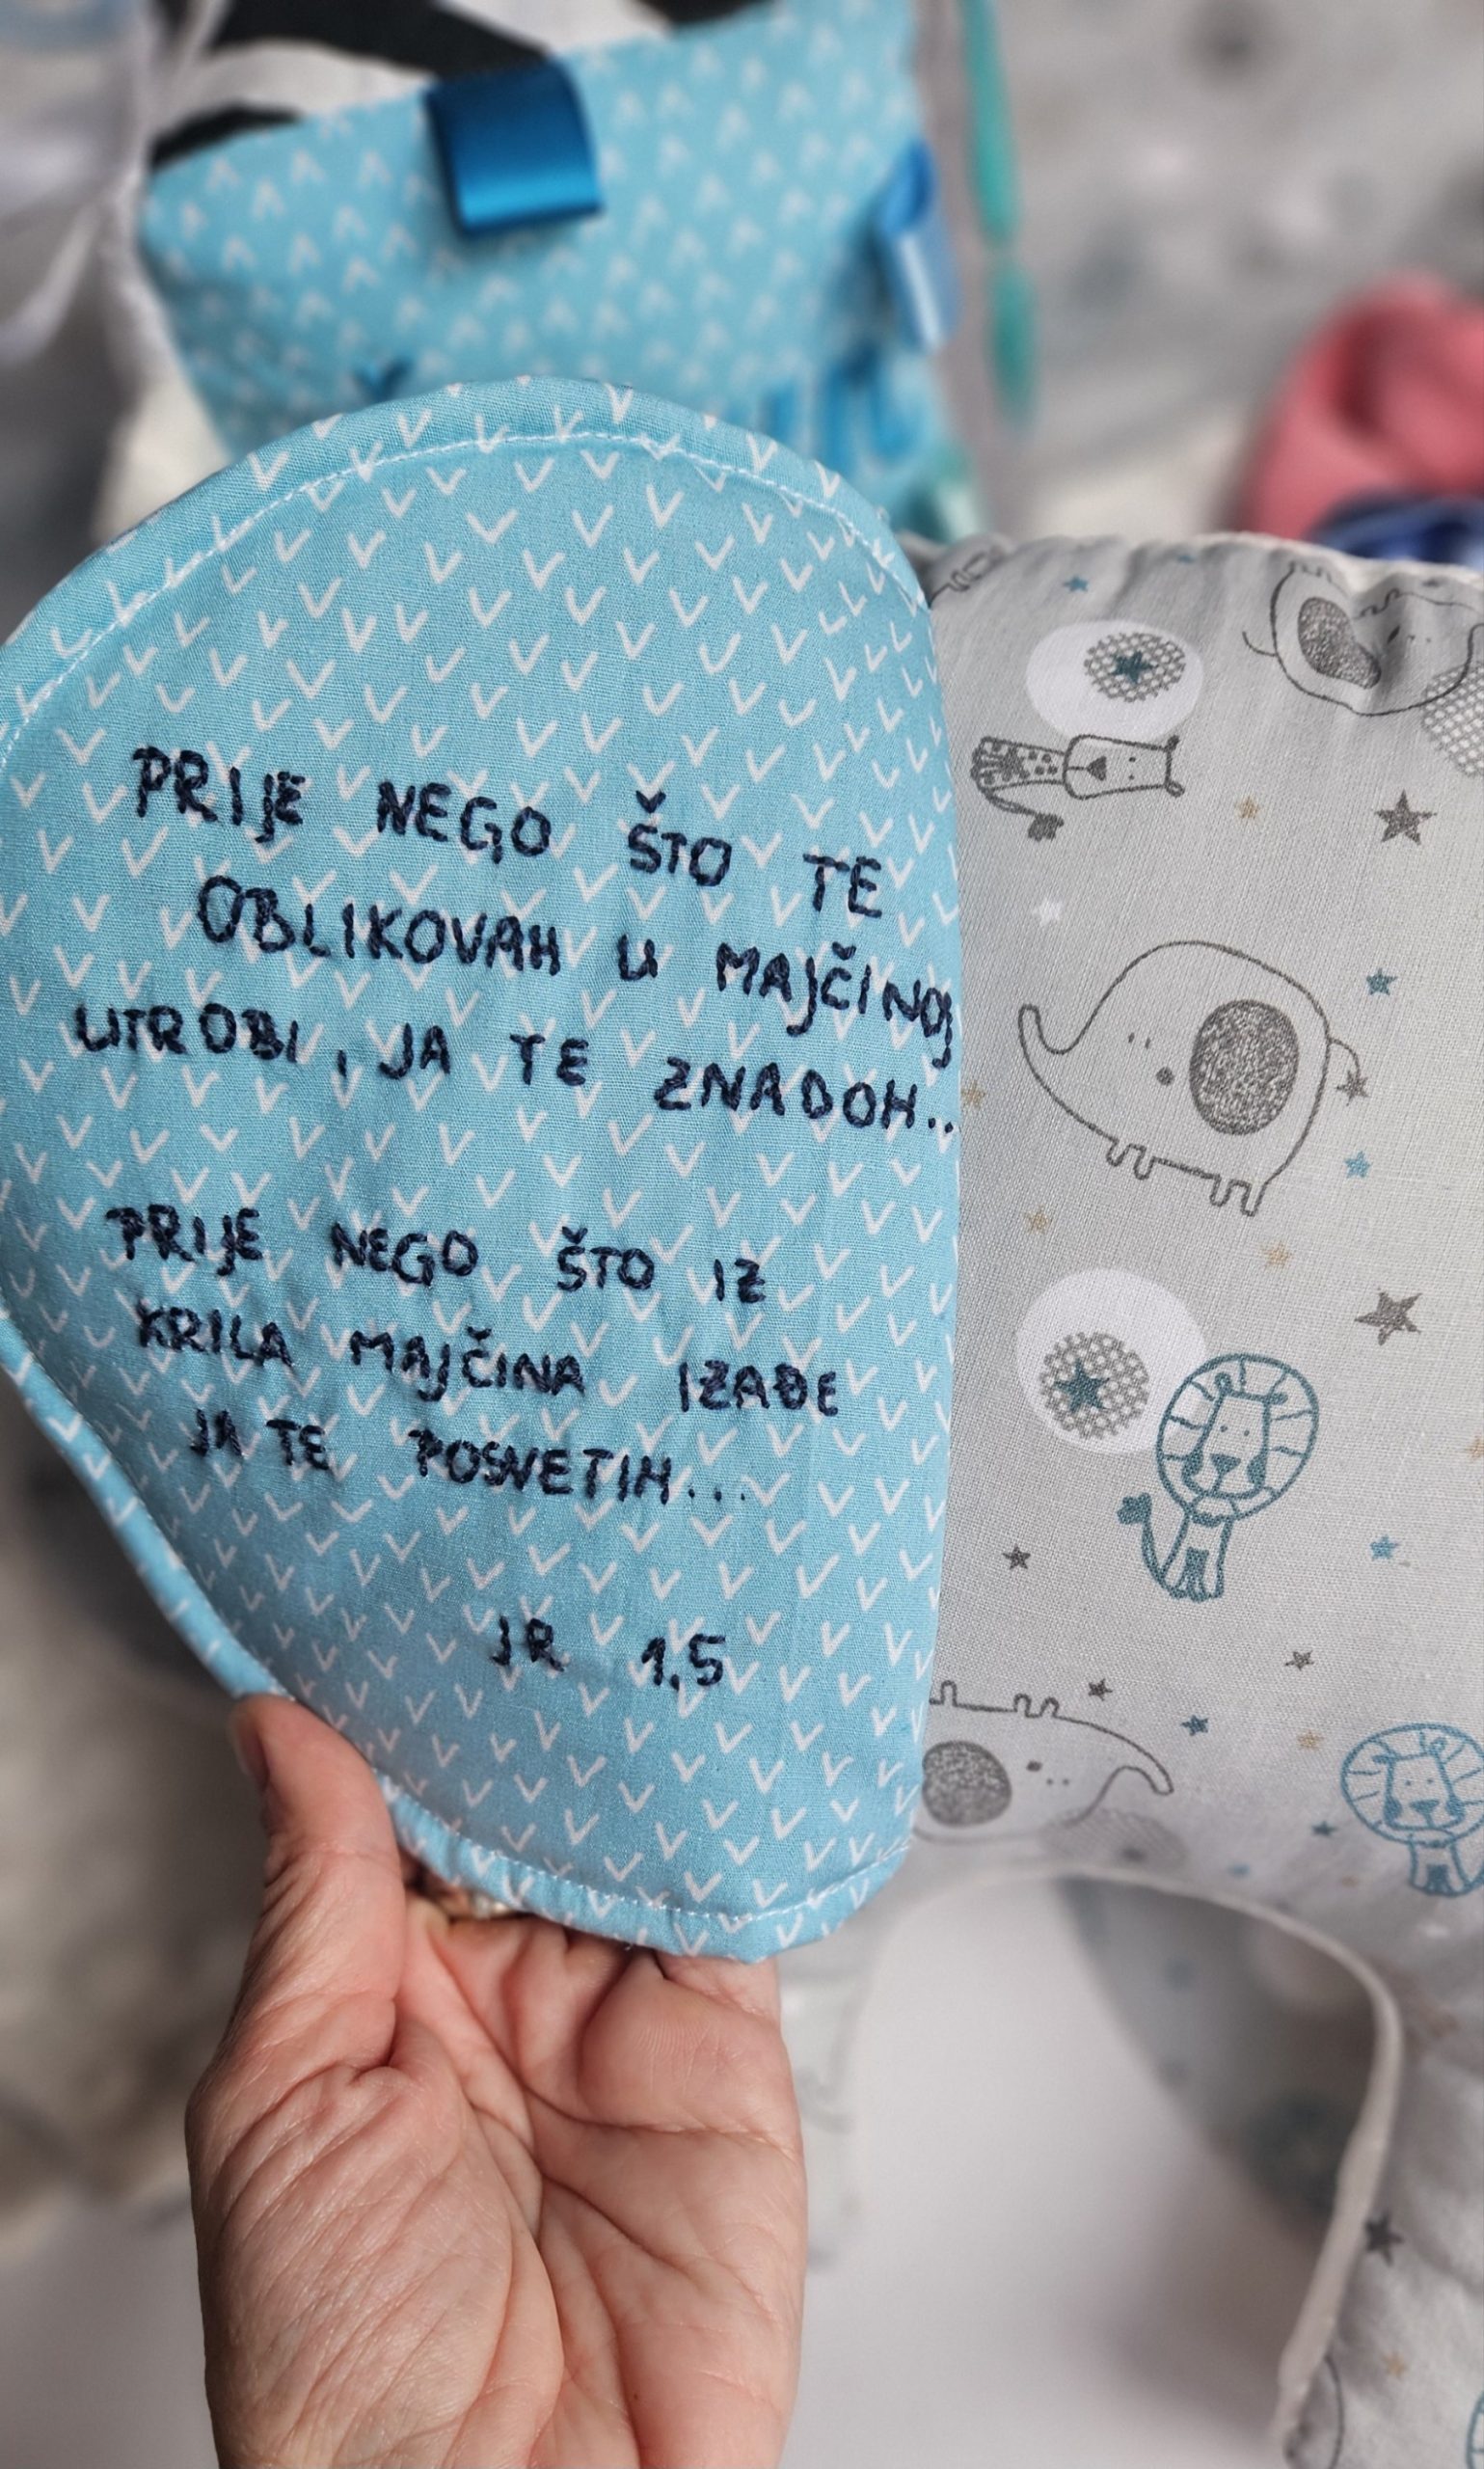 PRIJE NEGO ŠTO TE
OBLIKOVAH U MAJČINOJ
UTROBI, JA TE ZNADOH..
PRIJE NEGO ŠTO IZ
KRILA MAJČINA IZAĐE
JA TE POSVETIH...
JR 1,5